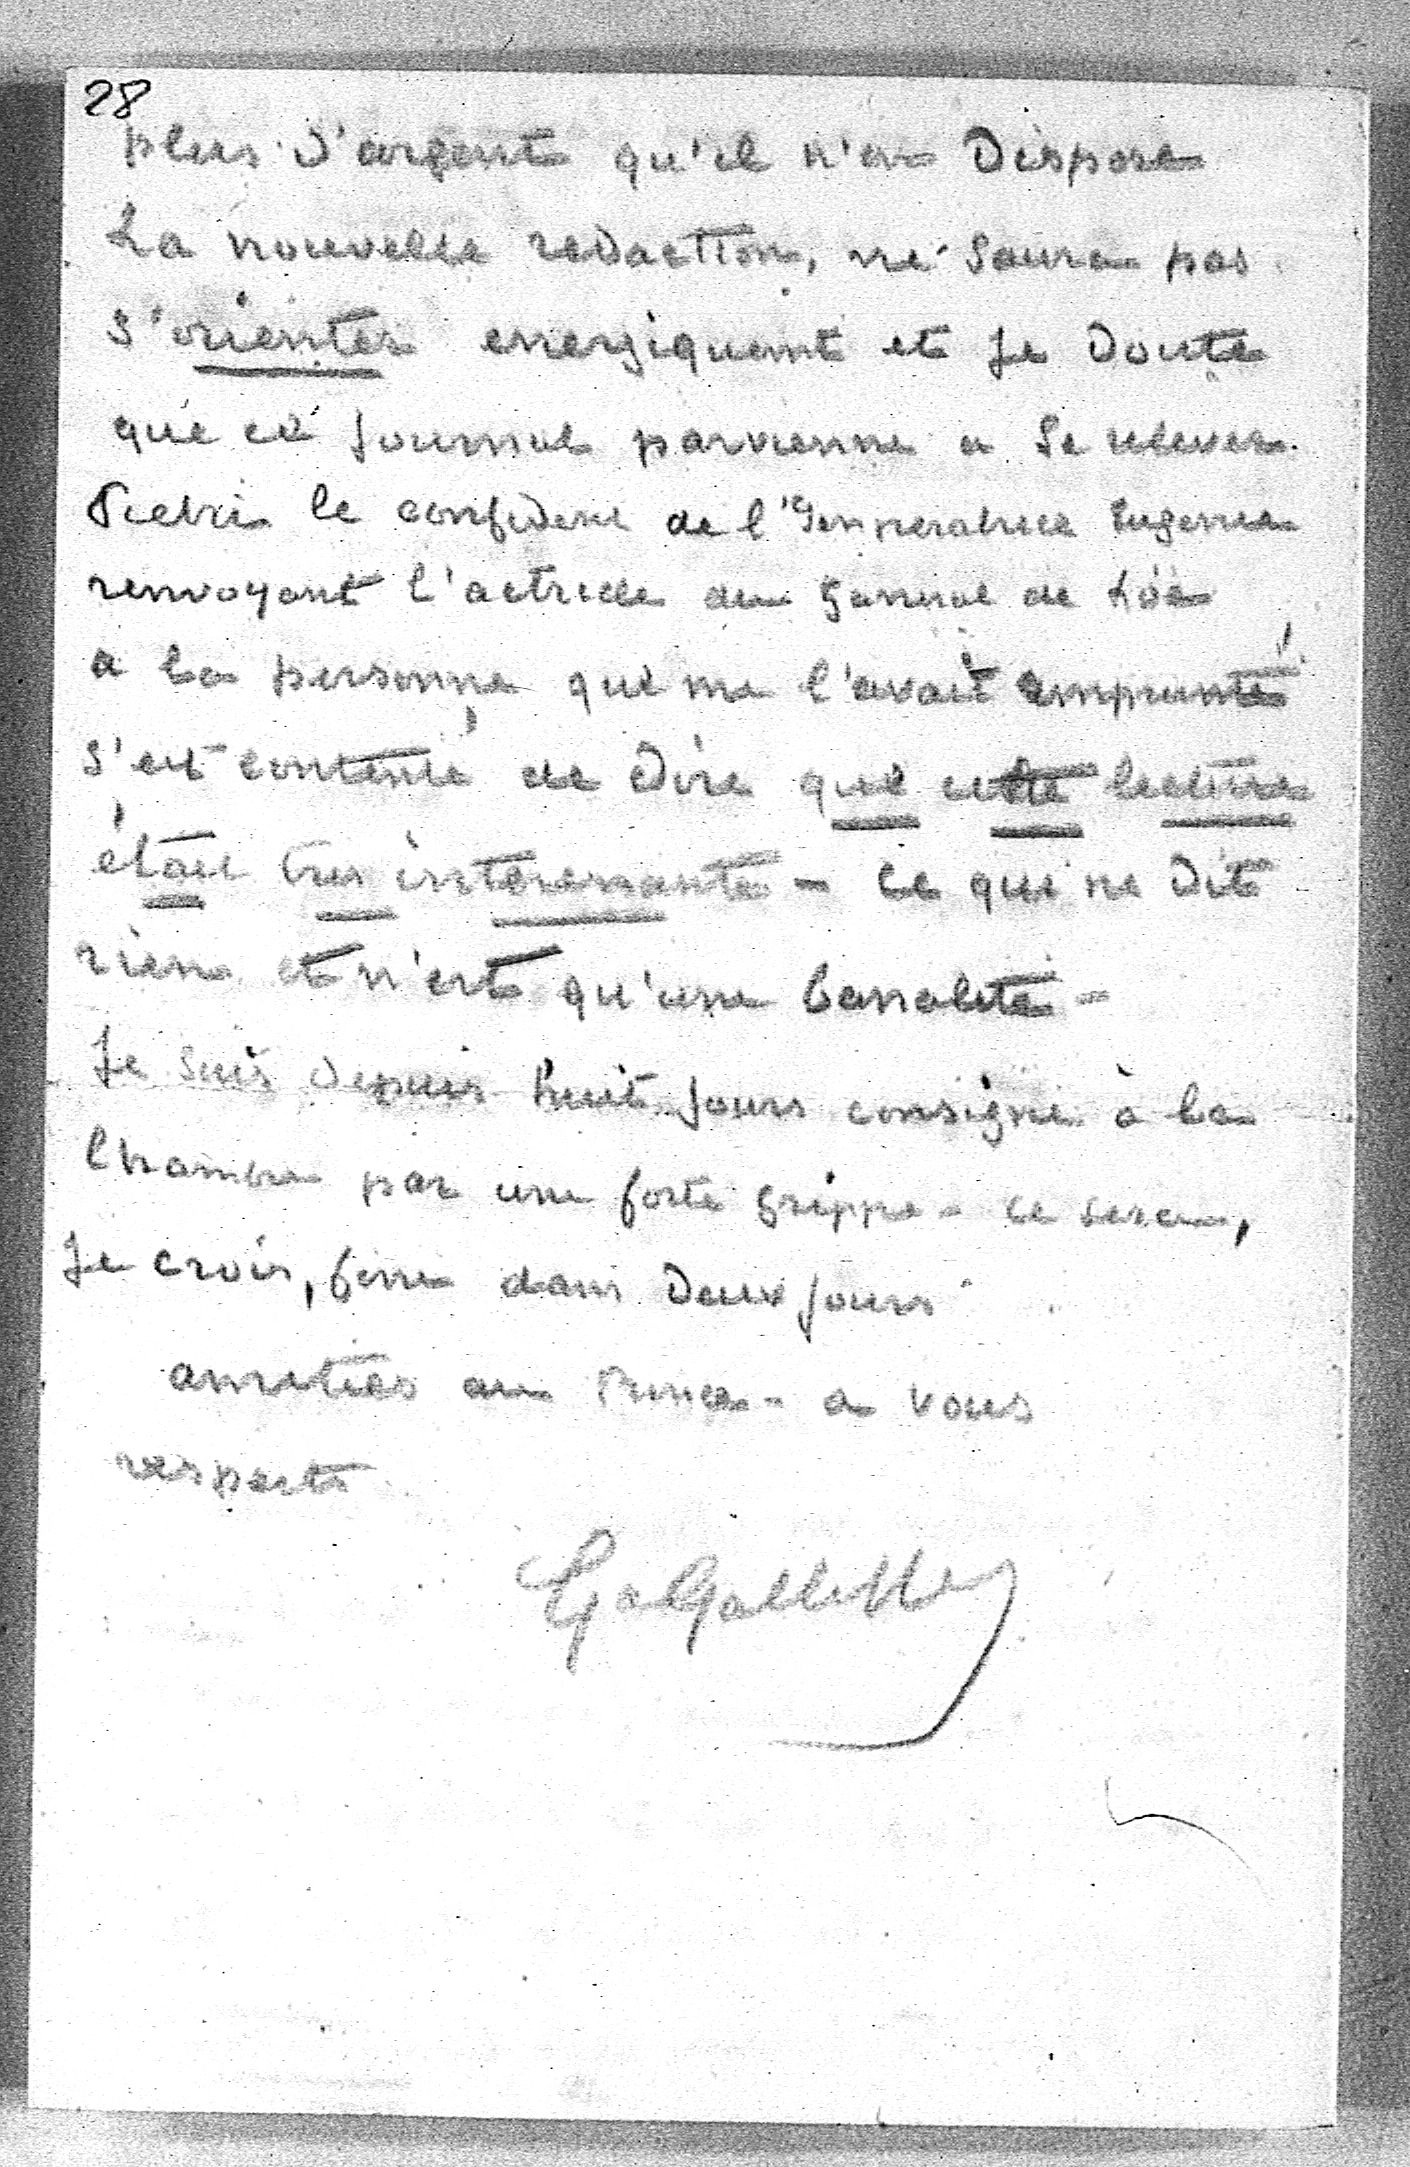 28
plus d'argent qu'il n'en Dispose
La nouvelle redaction, ne saura pas
s'orienter energiquemt et Je Doute
que ce Journal parvienne a Se relever.
Pietri le confident de l'Imperatrice Eugenie
renvoyant l'actricle du General de Loë
a la personne qui me l'avait emprunté
s'est contenté de dire que cette lecture
était tres interessante - Ce qui ne Dit
rien et n'est qu'une banalité -
Je suis Depuis huit Jours consigné à la
Chambre par une forte Grippe - ce sera,
Je crois, fini dans Deux Jours
amitiés au Prince - a vous
respects
Ga Galliffet